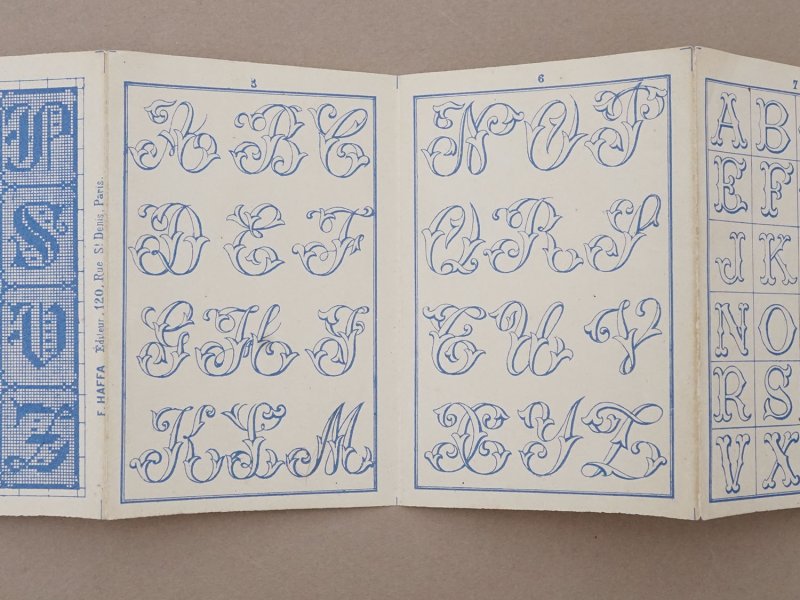 P
S
V
Z
F. HAFFA Editeur, 120, Rue St Denis, Paris.
5
A B C
D E F
G H J
K L M
6
N O P
Q R S
T U V
X Y Z
7
A B
E F
J K
N O
R S
V X